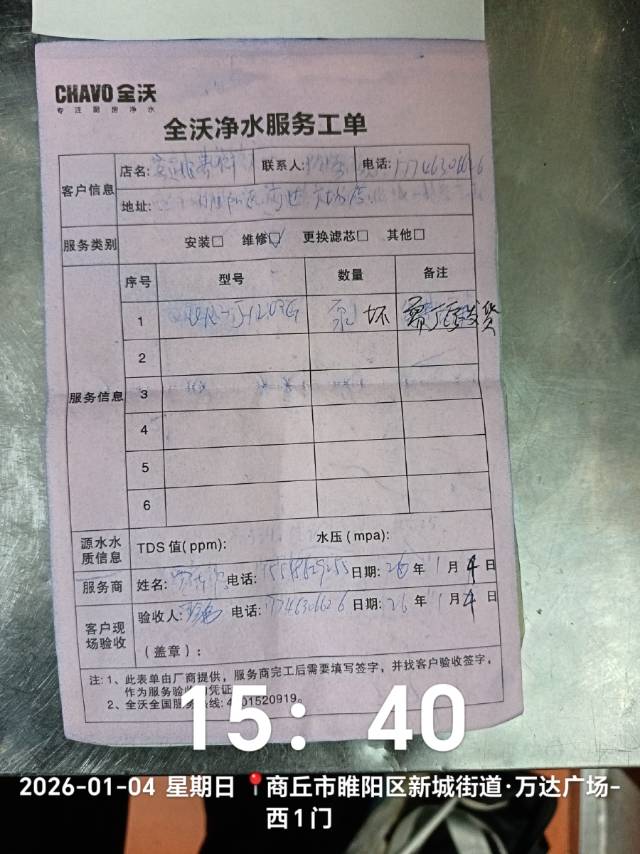 CHAVO 全沃
专注厨房净水
全沃净水服务工单
客户信息
店名: 联系人: 电话: 17746306626
地址:
服务类别 安装□ 维修☑ 更换滤芯□ 其他□
服务信息
序号 型号 数量 备注
1 泵 坏
2
3
4
5
6
源水水质信息 TDS 值(ppm): 水压(mpa):
服务商 姓名: 电话: 日期: 26 年 1 月 4 日
客户现场验收 验收人: 电话: 17746306626 日期: 26 年 1 月 4 日
(盖章):
注: 1、此表单由厂商提供，服务商完工后需要填写签字，并找客户验收签字，
作为服务验收的凭证
2、全沃全国服务热线: 4001520919。
15: 40
2026-01-04 星期日 商丘市睢阳区新城街道·万达广场-
西1门